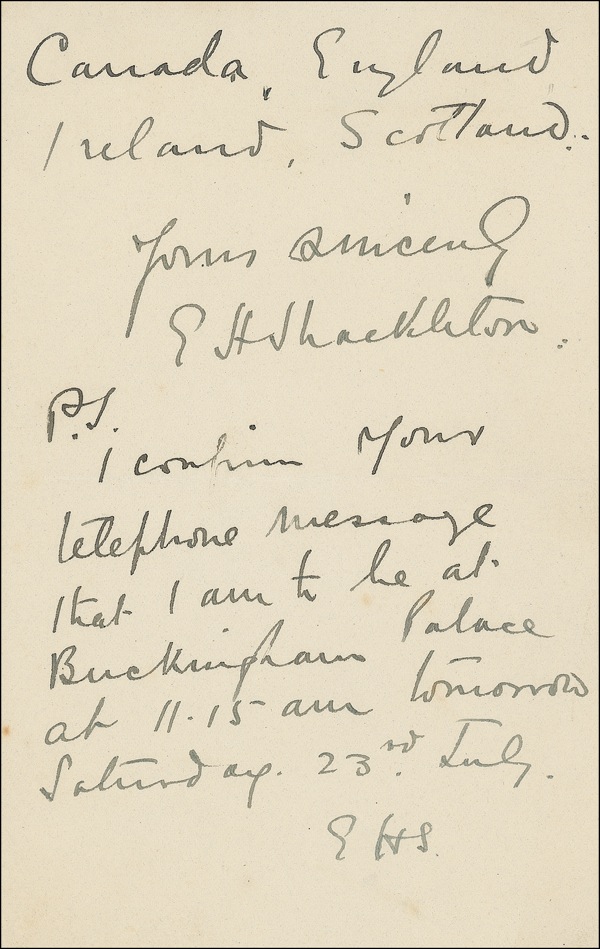 Canada, England
Ireland, Scotland.
Yours sincerely
E H Shackleton.
P.S.
I confirm your
telephone message
that I am to be at
Buckingham Palace
at 11.15 am tomorrow
Saturday. 23rd. July.
E H S.